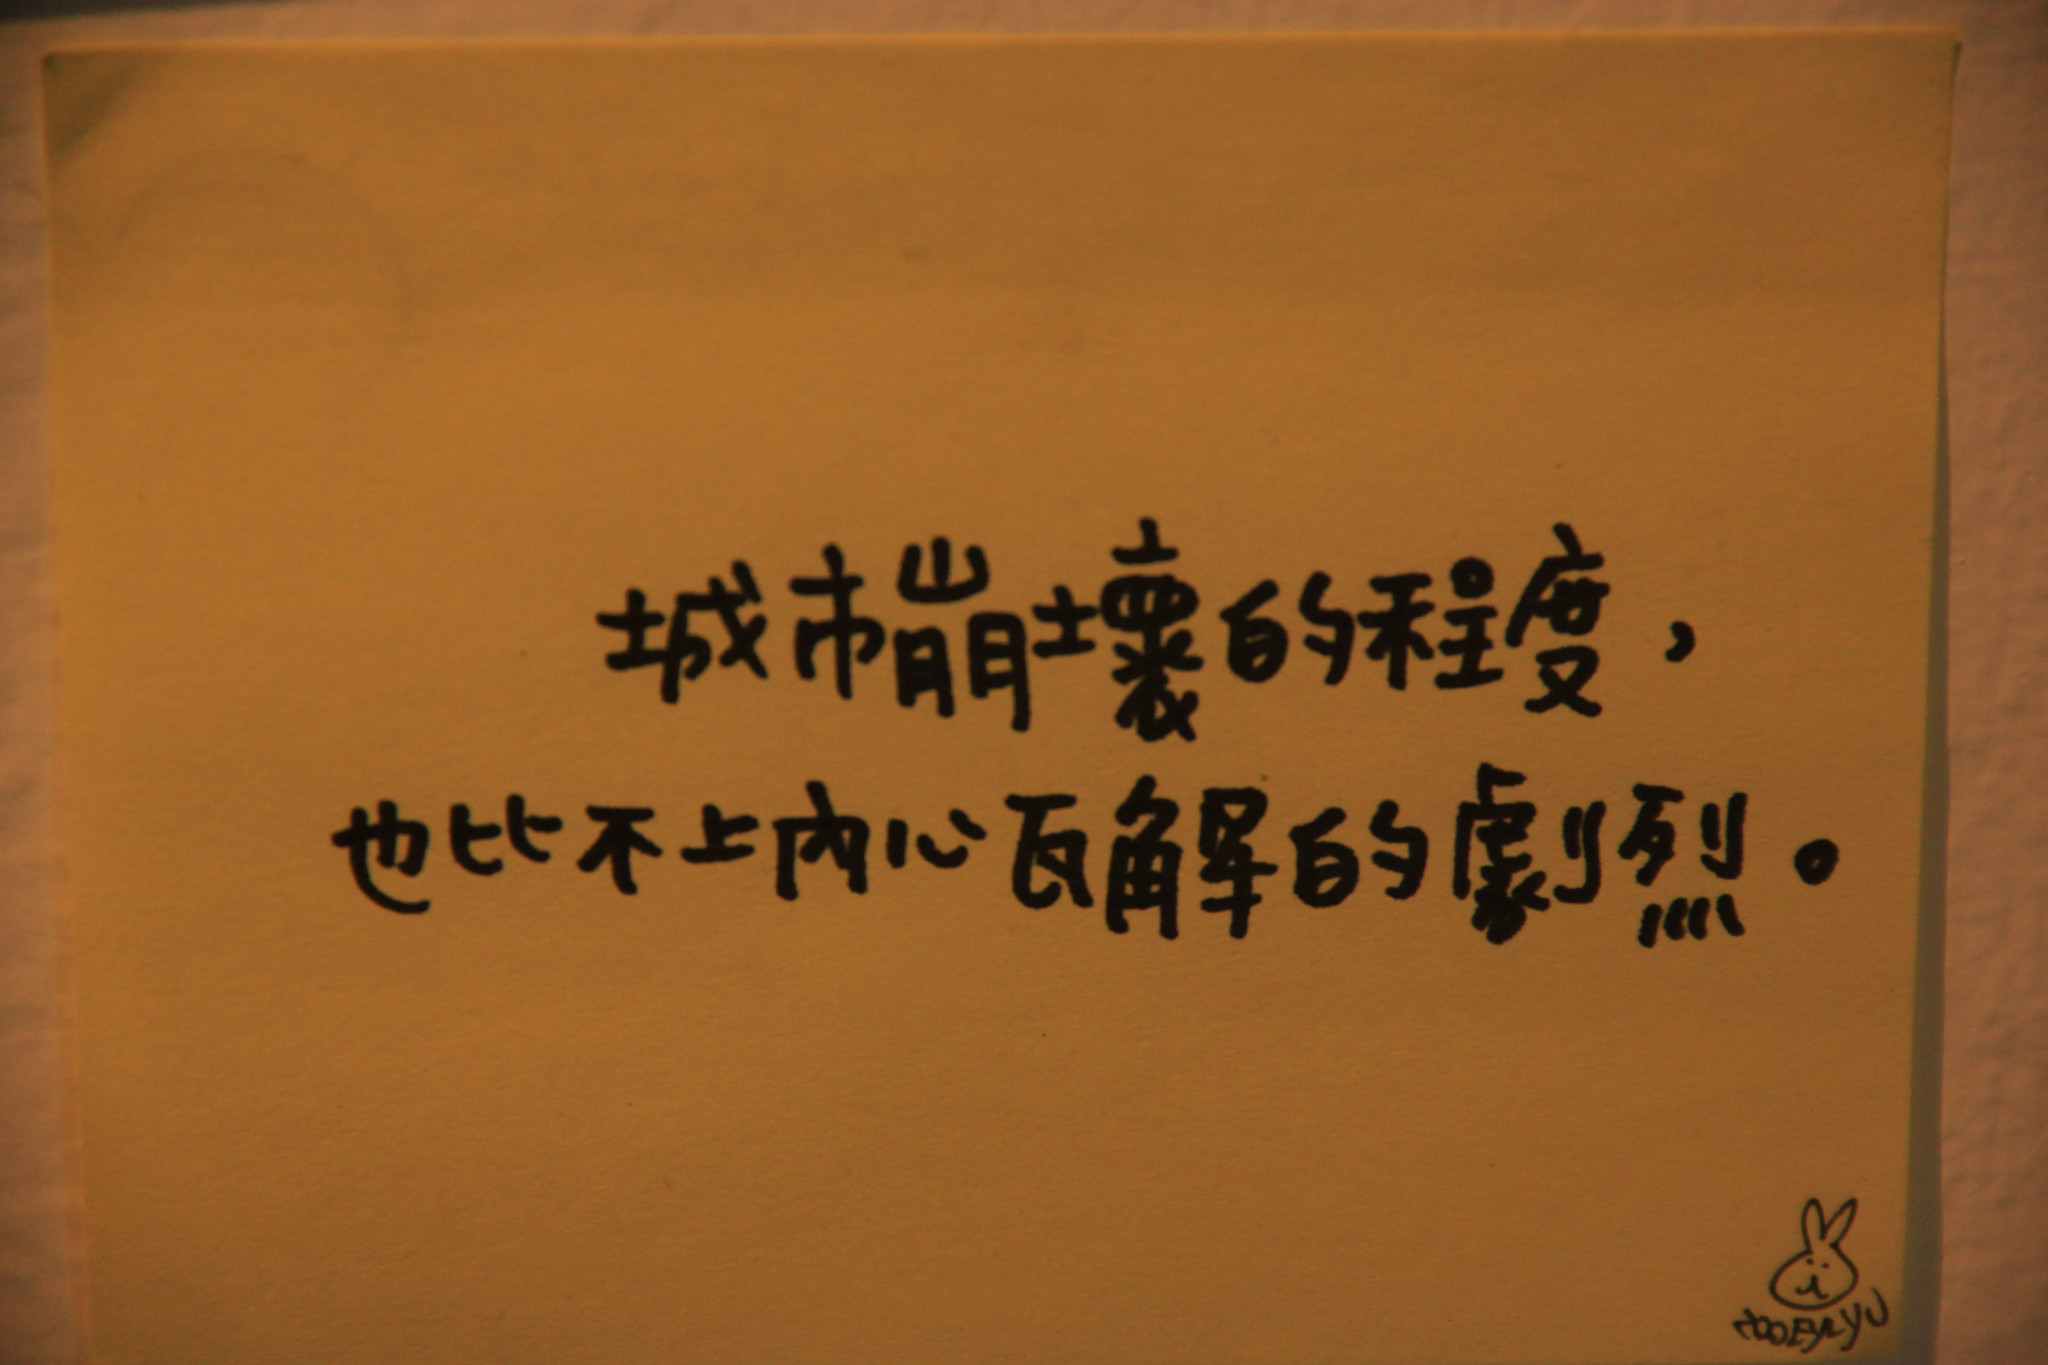 城市崩壞的程度，
也比不上內心瓦解的劇烈。